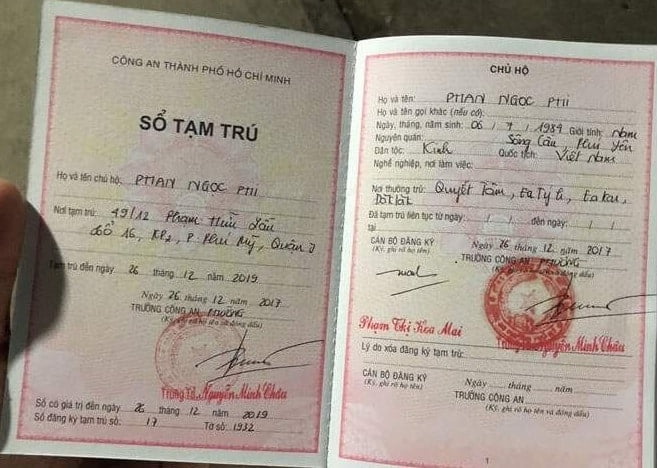 CÔNG AN THÀNH PHỐ HỒ CHÍ MINH
SỔ TẠM TRÚ
Họ và tên chủ hộ: PHAN NGỌC PHI
Nơi tạm trú: 49/12 Phạm Hữu Lầu
tổ 16, KP2, P. Phú Mỹ, Quận 7
Tạm trú đến ngày 26 tháng 12 năm 2019
Ngày 26 tháng 12 năm 2017
TRƯỞNG CÔNG AN PHƯỜNG
(Ký, ghi rõ họ tên và đóng dấu)
Trung Tá Nguyễn Minh Châu
Sổ có giá trị đến ngày 26 tháng 12 năm 2019
Sổ đăng ký tạm trú số: 17 Tờ số: 1932
CHỦ HỘ
Họ và tên: PHAN NGỌC PHI
Họ và tên gọi khác (nếu có):
Ngày, tháng, năm sinh: 06 / 7 / 1989 Giới tính: Nam
Nguyên quán: Sông Cầu, Phú Yên
Dân tộc: Kinh Quốc tịch: Việt Nam
Nghề nghiệp, nơi làm việc:
Nơi thường trú: Quyết Tâm, Ea Tý h, Ea Kar,
Đắt lắk
Đã tạm trú liên tục từ ngày: / / đến ngày: / /
tại
Ngày 26 tháng 12 năm 2017
CÁN BỘ ĐĂNG KÝ
(Ký, ghi rõ họ tên)
TRƯỞNG CÔNG AN PHƯỜNG
(Ký, ghi rõ họ tên và đóng dấu)
Phạm Thị Hoa Mai
Trung Tá Nguyễn Minh Châu
Lý do xóa đăng ký tạm trú:
Ngày tháng năm
CÁN BỘ ĐĂNG KÝ
(Ký, ghi rõ họ tên)
TRƯỞNG CÔNG AN
(Ký, ghi rõ họ tên và đóng dấu)
1